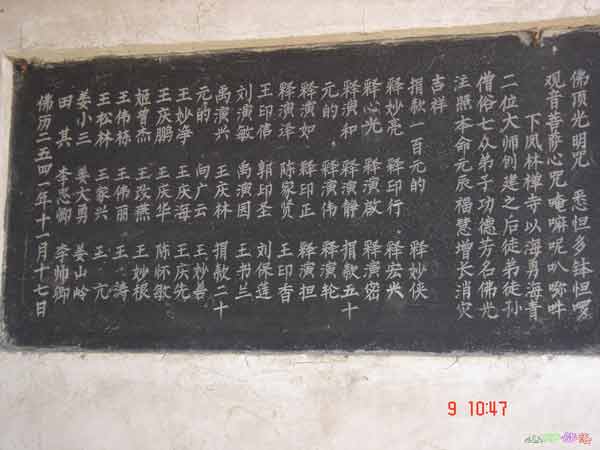 佛顶光明咒 悉怛多钵怛啰
观音菩萨心咒 唵嘛呢叭嘛吽
下凤林禅寺以海勇海青
二位大师创建之后徒弟徒孙
僧俗七众弟子功德芳名佛光
注照本命元辰福慧增长消灾
吉祥
捐款一百元的 释妙侠
释妙亮 释印行 释宏兴
释心光 释演啟 释演密
释演和 释演静 捐款五十
元的 释演伟 释演轮
释演如 释印正 释演担
释演泽 陈家贤 王印香
王印信 郭印圣 刘保莲
刘演敏 禹演因 王书兰
禹演兴 王庆林 捐款二十
元的 向广云 王妙善
王妙净 王庆海 王庆先
王庆鹏 王庆华 陈怀敏
姬曾杰 王改燕 王妙根
王伟栋 王伟丽 王涛
王松林 王家兴 王亢
姜小三 姜大勇 姜山岭
田其 李志卿 李帅卿
佛历二五四一年十一月十七日
9 10:47